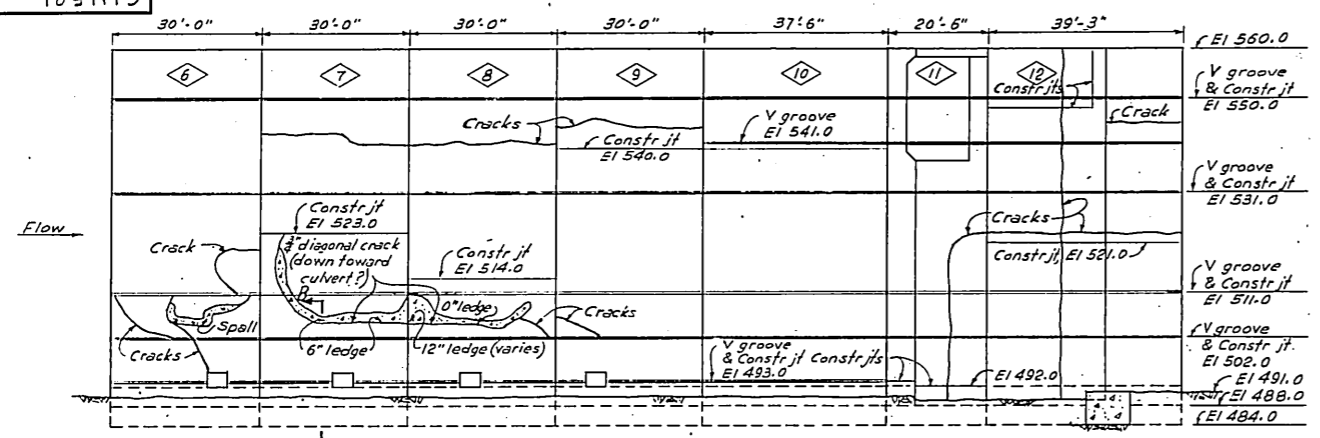 30'-0" 30'-0" 30'-0" 30'-0" 37'-6" 20'-6" 39'-3"
El 560.0
6 7 8 9 10 11 12
Constr jts
V groove
& Constr jt
El 550.0
Cracks
V groove
El 541.0
Crack
Constr jt
El 540.0
V groove
& Constr jt
El 531.0
Flow
Constr jt
El 523.0
Crack
3/4" diagonal crack
(down toward
culvert?)
Constr jt
El 514.0
Cracks
Constr jt, El 521.0
V groove
& Constr jt
El 511.0
B
Spall
0" ledge
Cracks
Cracks
6" ledge
12" ledge (varies)
V groove
& Constr jt
El 493.0
Constr jts
V groove
& Constr jt.
El 502.0
El 492.0
El 491.0
El 488.0
El 484.0